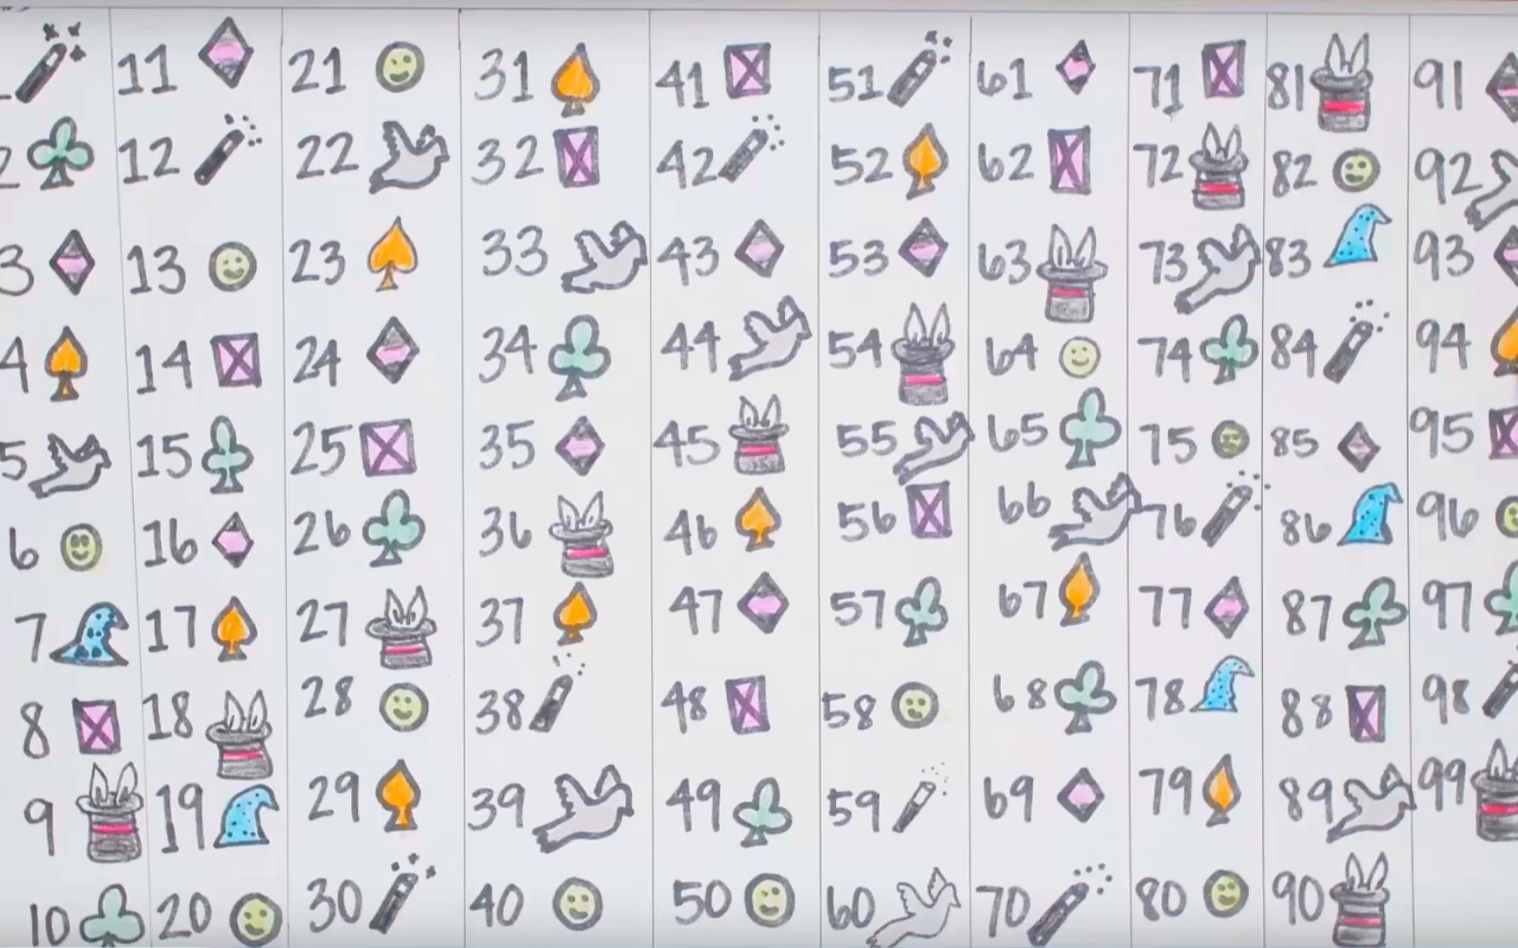 2
3
4
5
6
7
8
9
10
11
12
13
14
15
16
17
18
19
20
21
22
23
24
25
26
27
28
29
30
31
32
33
34
35
36
37
38
39
40
41
42
43
44
45
46
47
48
49
50
51
52
53
54
55
56
57
58
59
60
61
62
63
64
65
66
67
68
69
70
71
72
73
74
75
76
77
78
79
80
81
82
83
84
85
86
87
88
89
90
91
92
93
94
95
96
97
98
99